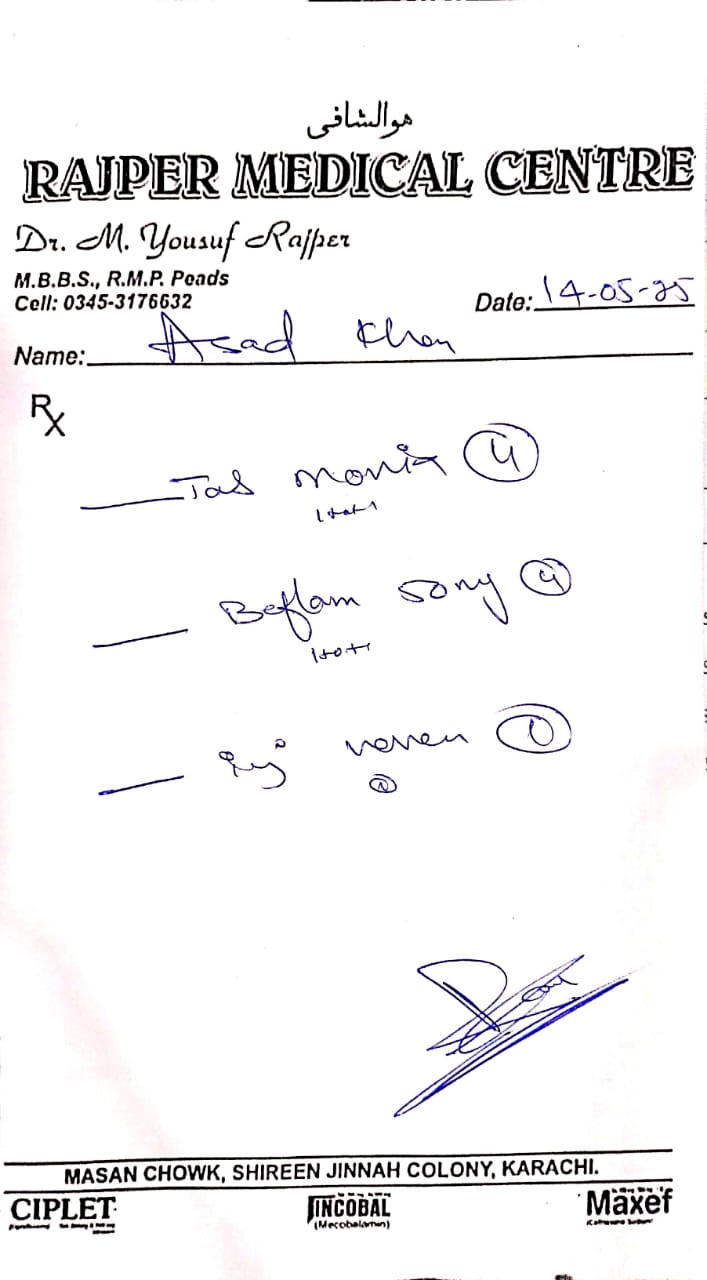 هوالشافی
RAJPER MEDICAL CENTRE
Dr. M. Yousuf Rajper
M.B.B.S., R.M.P. Peads
Cell: 0345-3176632
Date: 14-05-25
Name: Asad Khan
Rx
Tab 4
1+0+1
Beflam 50mg 4
1+0+1
Inj 1
MASAN CHOWK, SHIREEN JINNAH COLONY, KARACHI.
CIPLET JINCOBAL Maxef
(Mecobalamin)